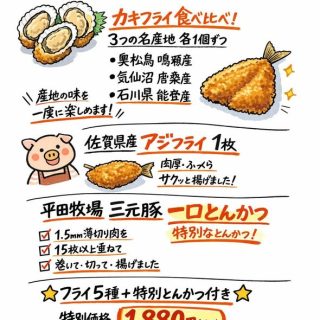 カキフライ食べ比べ!
3つの名産地 各1個ずつ
・奥松島 鳴瀬産
・気仙沼 唐桑産
・石川県 能登産
産地の味を
一度に楽しめます!
佐賀県産 アジフライ 1枚
肉厚・ふっくら
サクッと揚げました!
平田牧場 三元豚 一口とんかつ
特別なとんかつ!
1.5mm薄切り肉を
15枚以上重ねて
巻いて・切って・揚げました
フライ5種+特別とんかつ付き
特別価格